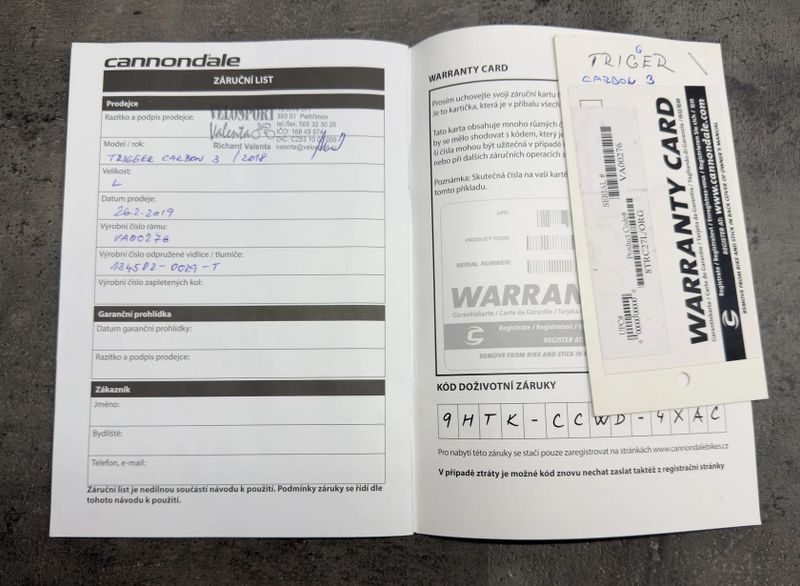 cannondale
ZÁRUČNÍ LIST
Prodejce
Razítko a podpis prodejce:
VELOSPORT
Valenta
Richard Valenta
393 01 Pelhřimov
tel./fax: 565 32 30 26
valenta@velo
Model / rok:
TRIGGER CARBON 3 / 2018
Velikost:
L
Datum prodeje:
26.2.2019
Výrobní číslo rámu:
VA00276
Výrobní číslo odpružené vidlice / tlumiče:
134582-0029-T
Výrobní číslo zapletených kol:
Garanční prohlídka
Datum garanční prohlídky:
Razítko a podpis prodejce:
Zákazník
Jméno:
Bydliště:
Telefon, e-mail:
Záruční list je nedílnou součástí návodu k použití. Podmínky záruky se řídí dle
tohoto návodu k použití.
WARRANTY CARD
Prosím uchovejte svoji záruční kartu
je to kartička, která je v příbalu všech
Tato karta obsahuje mnoho různých č
by se mělo shodovat s kódem, který je
ší čísla mohou být užitečná v případě
nebo při dalších záručních operacích s
Poznámka: Skutečná čísla na vaší kartě
tomto příkladu.
UPC:
PRODUCT CODE:
SERIAL NUMBER:
WARRAN
Garantiekarte / Carte de Garantie / Tarjeta
Registrate / Registrateri / E
REGISTER AT:
REMOVE FROM BIKE AND STICK IN
KÓD DOŽIVOTNÍ ZÁRUKY
9HTK-CCWD-4XAC
Pro nabytí této záruky se stačí pouze zaregistrovat na stránkách www.cannondalebikes.cz
V případě ztráty je možné kód znovu nechat zaslat taktéž z registrační stránky
G
TRIGER
CARBON 3
SERIAL#
VA00276
Product Code#
8TRC27L/ORG
UPC#
WARRANTY CARD
REGISTER AT: www.cannondale.com
REMOVE FROM BIKE AND STICK IN BACK COVER OF OWNER'S MANUAL